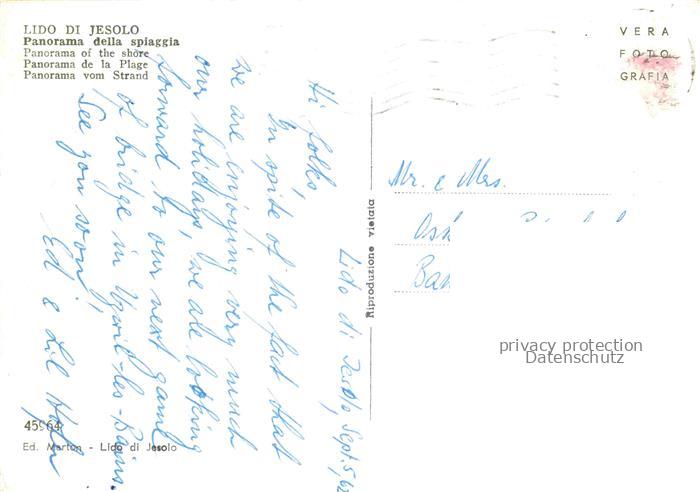 LIDO DI JESOLO
Panorama della spiaggia
Panorama of the shore
Panorama de la Plage
Panorama vom Strand
VERA
FOTO
GRAFIA
Lido di Jesolo, Sept. 5, 62
Hi folks,
In spite of the fact that
we are enjoying very much
our holidays, we are looking
forward to our next game
of bridge in Yverdon-les-Bains.
See you soon,
Ed & Lil
Riproduzione vietata
Mr. & Mrs.
45964
Ed. Marton - Lido di Jesolo
privacy protection
Datenschutz